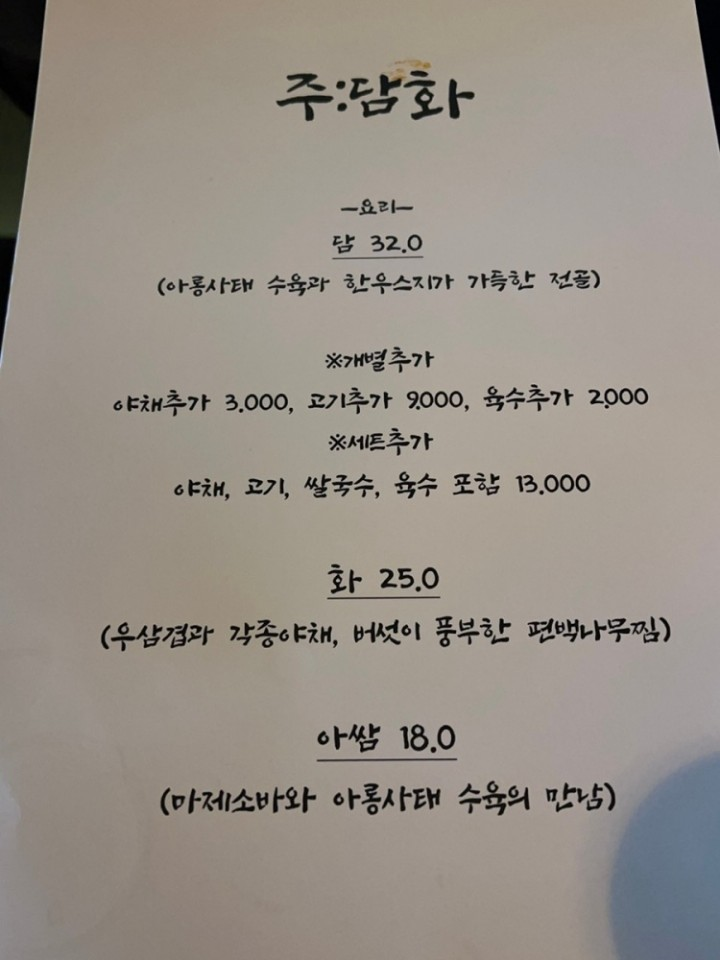 주:담화
-요리-
담 32.0
(아롱사태 수육과 한우스지가 가득한 전골)
※개별추가
야채추가 3,000, 고기추가 9,000, 육수추가 2,000
※세트추가
야채, 고기, 쌀국수, 육수 포함 13,000
화 25.0
(우삼겹과 각종야채, 버섯이 풍부한 편백나무찜)
아쌈 18.0
(마제소바와 아롱사태 수육의 만남)